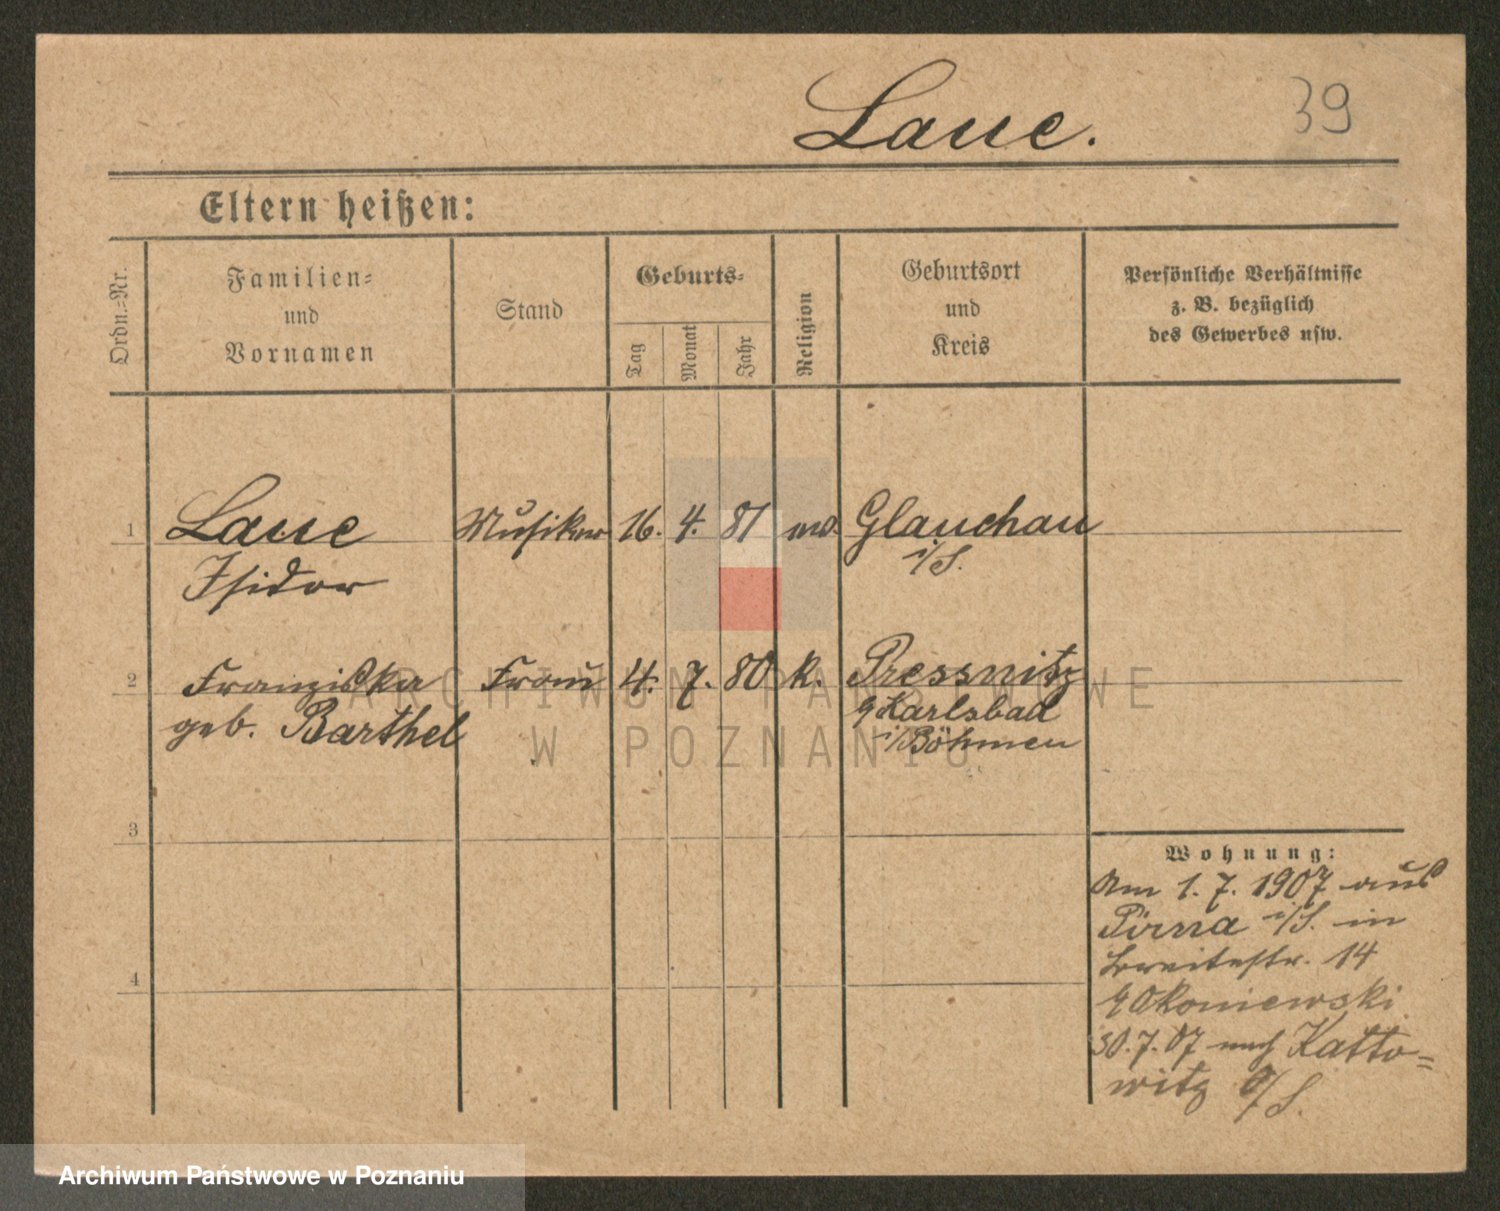 Laue.
39
Eltern heißen:
Ordn.-Nr.
Familien-
und
Vornamen
Stand
Geburts-
Tag
Monat
Jahr
Religion
Geburtsort
und
Kreis
Persönliche Verhältnisse
z. B. bezüglich
des Gewerbes usw.
1 Laue Musiker 16. 4. 81 Glauchau
Isidor i/S.
2 Franziska Frau 4. 7. 80 k. Pressnitz
geb. Barthel Karlsbad
i/Böhmen
3
4
Wohnung:
Am 1. 7. 1907 aus
Pirna i/S. in
Breitestr. 14
Okoniewski
30.7.07 nach Katto-
witz O/S.
ARCHIWUM PAŃSTWOWE
W POZNANIU
Archiwum Państwowe w Poznaniu